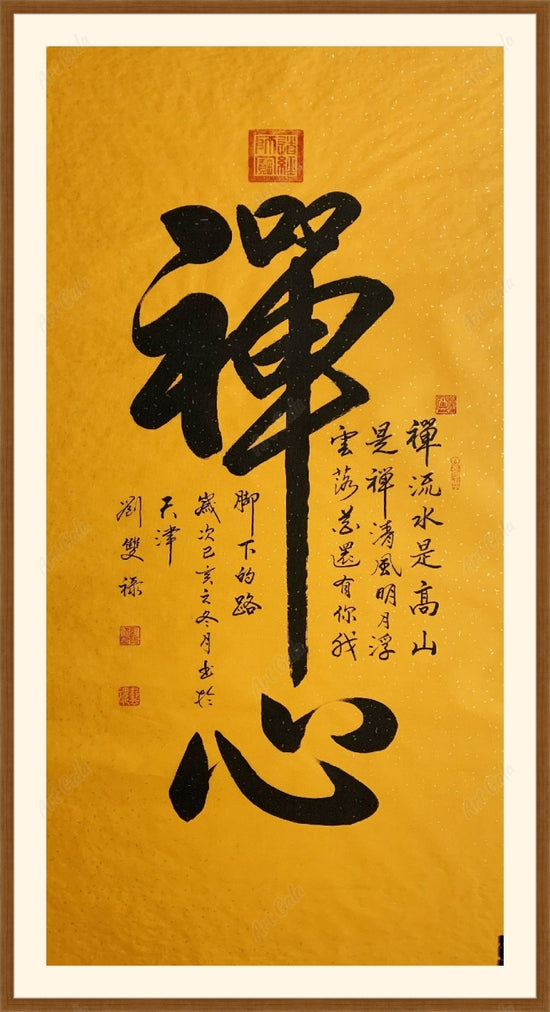 禪心
禪流水是高山
是禪清風明月浮
雲落花還有你我
脚下的路
歲次己亥之冬月書於
天津
劉雙祿
Art Gala